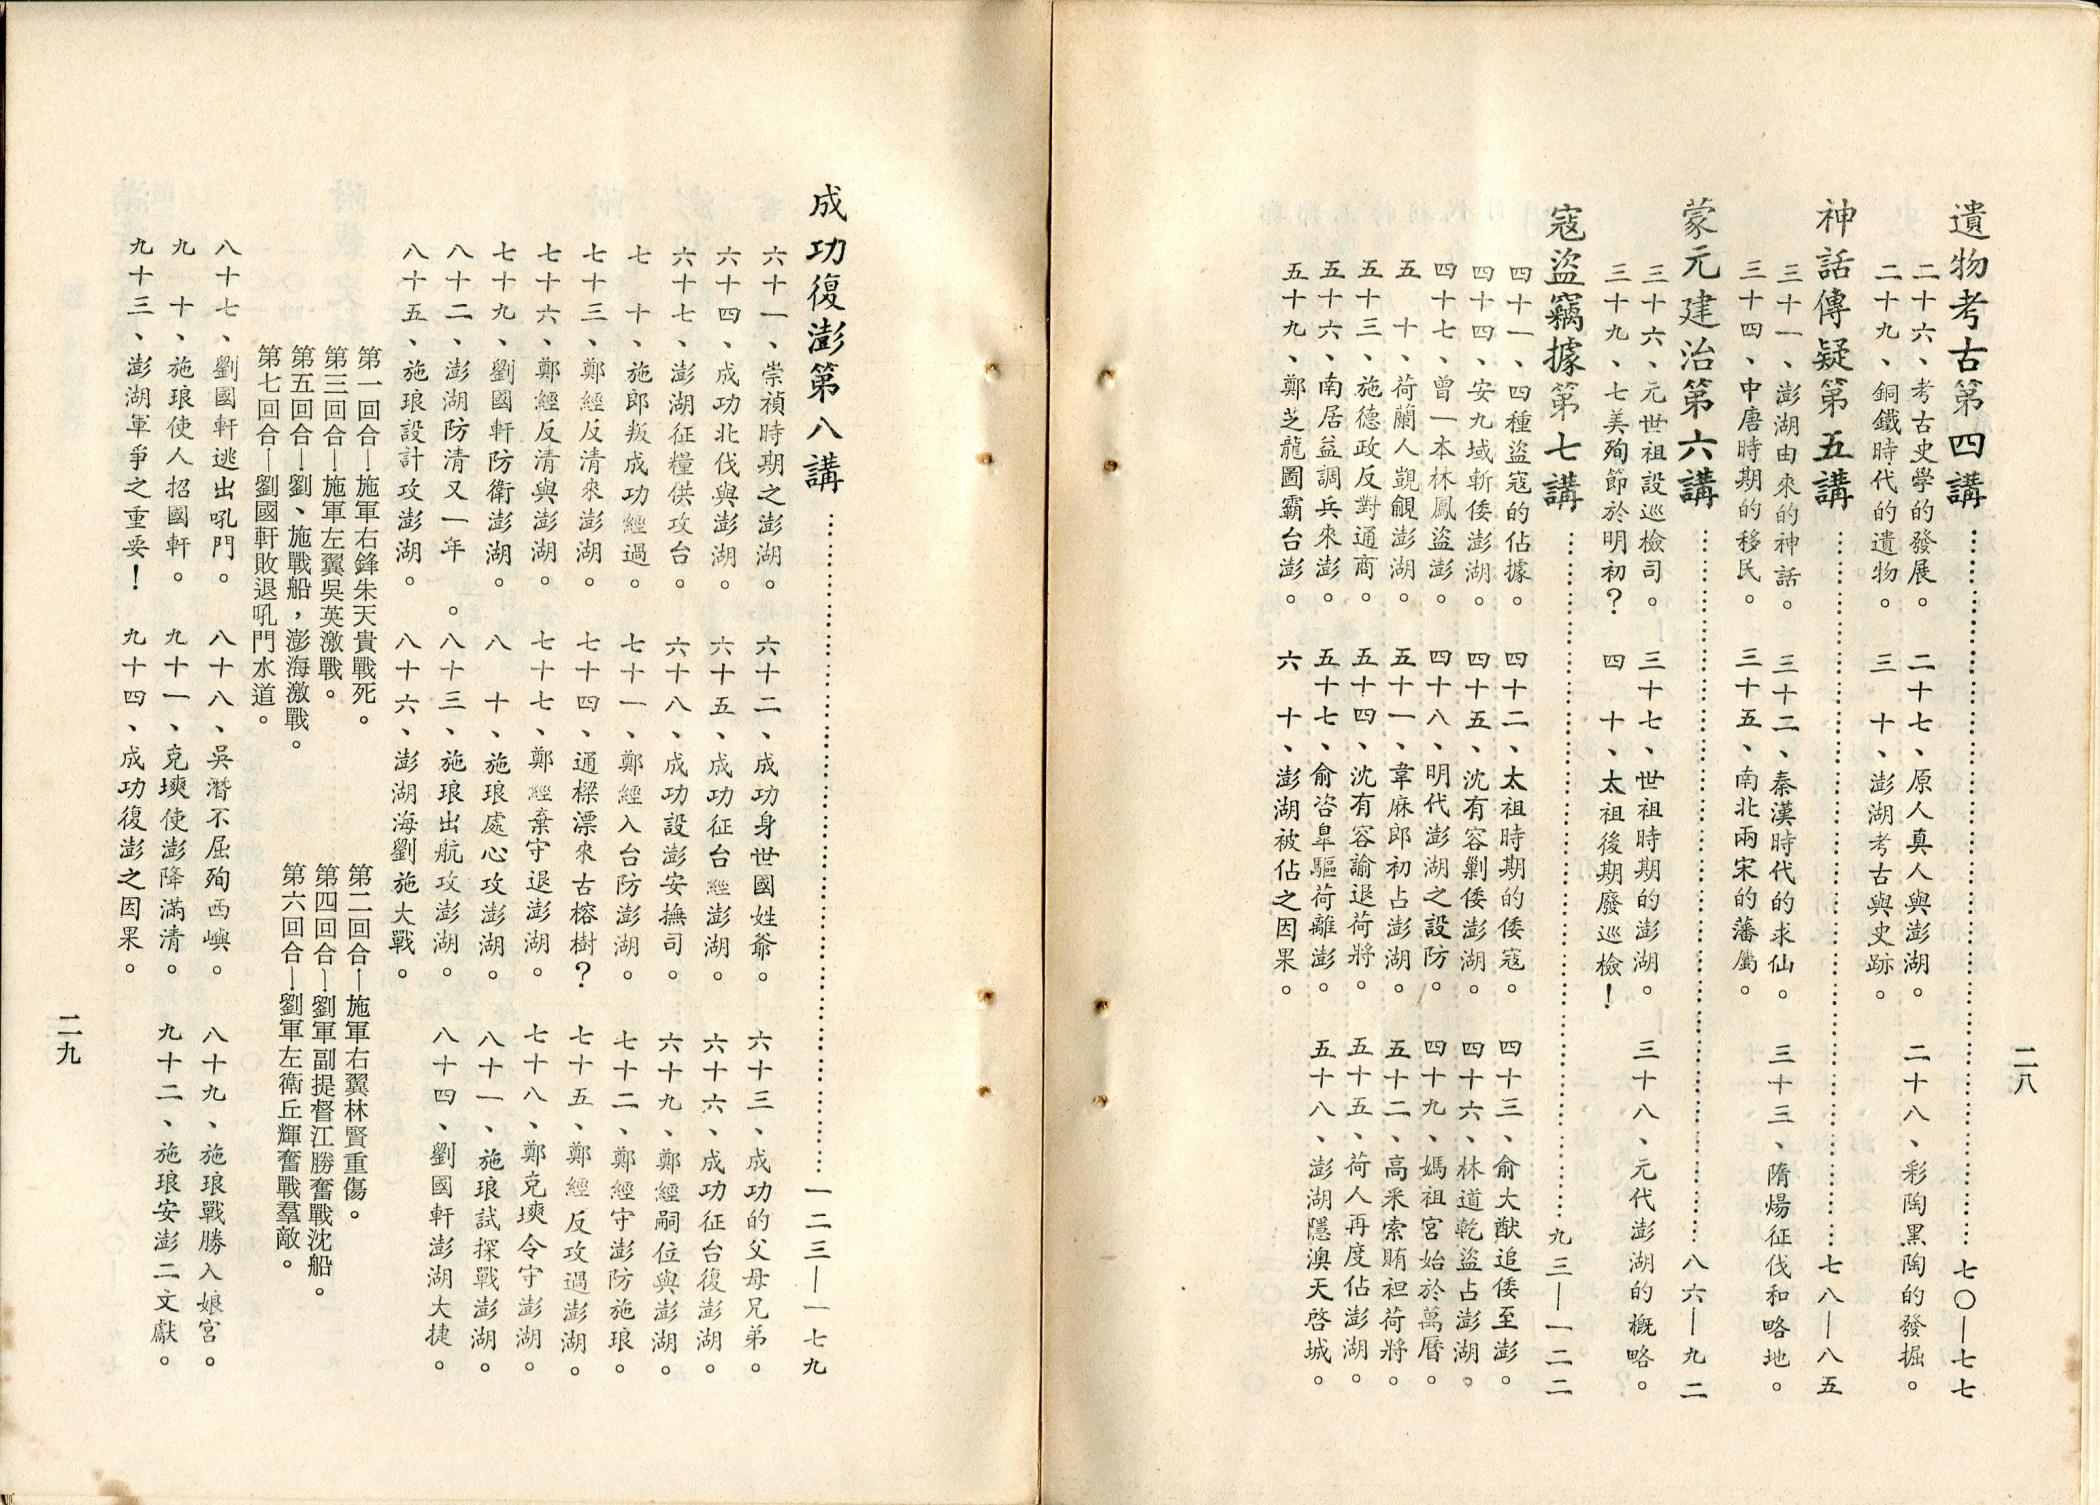 二八
遺物考古第四講……七〇—七七
二十六、考古史學的發展。　二十七、原人真人與澎湖。　二十八、彩陶黑陶的發掘。
二十九、銅鐵時代的遺物。　三　十、澎湖考古與史跡。
神話傳疑第五講……七八—八五
三十一、澎湖由來的神話。　三十二、秦漢時代的求仙。　三十三、隋煬征伐和略地。
三十四、中唐時期的移民。　三十五、南北兩宋的藩屬。
蒙元建治第六講……八六—九二
三十六、元世祖設巡檢司。　三十七、世祖時期的澎湖。　三十八、元代澎湖的概略。
三十九、七美殉節於明初？　四　十、太祖後期廢巡檢！
寇盜竊據第七講……九三—一二二
四十一、四種盜寇的佔據。　四十二、太祖時期的倭寇。　四十三、俞大猷追倭至澎。
四十四、安九域斬倭澎湖。　四十五、沈有容剿倭澎湖。　四十六、林道乾盜占澎湖。
四十七、曾一本林鳳盜澎。　四十八、明代澎湖之設防。　四十九、媽祖宮始於萬曆。
五　十、荷蘭人覬覦澎湖。　五十一、韋麻郎初占澎湖。　五十二、高寀索賄袒荷將。
五十三、施德政反對通商。　五十四、沈有容諭退荷將。　五十五、荷人再度佔澎湖。
五十六、南居益調兵來澎。　五十七、俞咨皐驅荷離澎。　五十八、澎湖隱澳天啓城。
五十九、鄭芝龍圖霸台澎。　六　十、澎湖被佔之因果。
成功復澎第八講……一二三—一七九
六十一、崇禎時期之澎湖。　六十二、成功身世國姓爺。　六十三、成功的父母兄弟。
六十四、成功北伐與澎湖。　六十五、成功征台經澎湖。　六十六、成功征台復澎湖。
六十七、澎湖征糧供攻台。　六十八、成功設澎安撫司。　六十九、鄭經嗣位與澎湖。
七　十、施郎叛成功經過。　七十一、鄭經入台防澎湖。　七十二、鄭經守澎防施琅。
七十三、鄭經反清來澎湖。　七十四、通樑漂來古榕樹？　七十五、鄭經反攻過澎湖。
七十六、鄭經反清與澎湖。　七十七、鄭經棄守退澎湖。　七十八、鄭克塽令守澎湖。
七十九、劉國軒防衛澎湖。　八　十、施琅處心攻澎湖。　八十一、施琅試探戰澎湖。
八十二、澎湖防清又一年。　八十三、施琅出航攻澎湖。　八十四、劉國軒澎湖大捷。
八十五、施琅設計攻澎湖。　八十六、澎湖海劉施大戰。
第一回合—施軍右鋒朱天貴戰死。　第二回合—施軍右翼林賢重傷。
第三回合—施軍左翼吳英激戰。　第四回合—劉軍副提督江勝奮戰沈船。
第五回合—劉、施戰船，澎海激戰。　第六回合—劉軍左衛丘輝奮戰羣敵。
第七回合—劉國軒敗退吼門水道。
八十七、劉國軒逃出吼門。　八十八、吳潛不屈殉西嶼。　八十九、施琅戰勝入娘宮。
九　十、施琅使人招國軒。　九十一、克塽使澎降滿清。　九十二、施琅安澎二文獻。
九十三、澎湖軍爭之重要！　九十四、成功復澎之因果。
二九